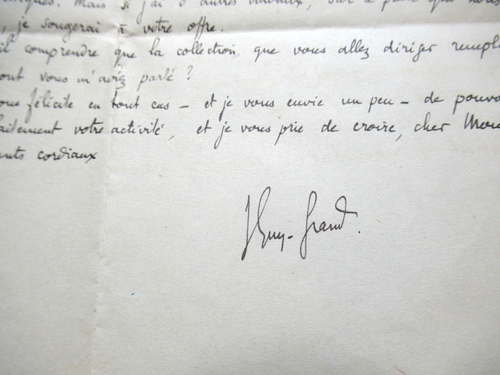 Mais si j'ai d'autres
je songerai à votre offre.
il comprendre que la collection, que vous allez diriger rempl
ont vous m'aviez parlé ?
ous félicite en tout cas - et je vous envie un peu - de pouvo
aitement votre activité, et je vous prie de croire, cher Mon
ents cordiaux
J Guy-Grand.